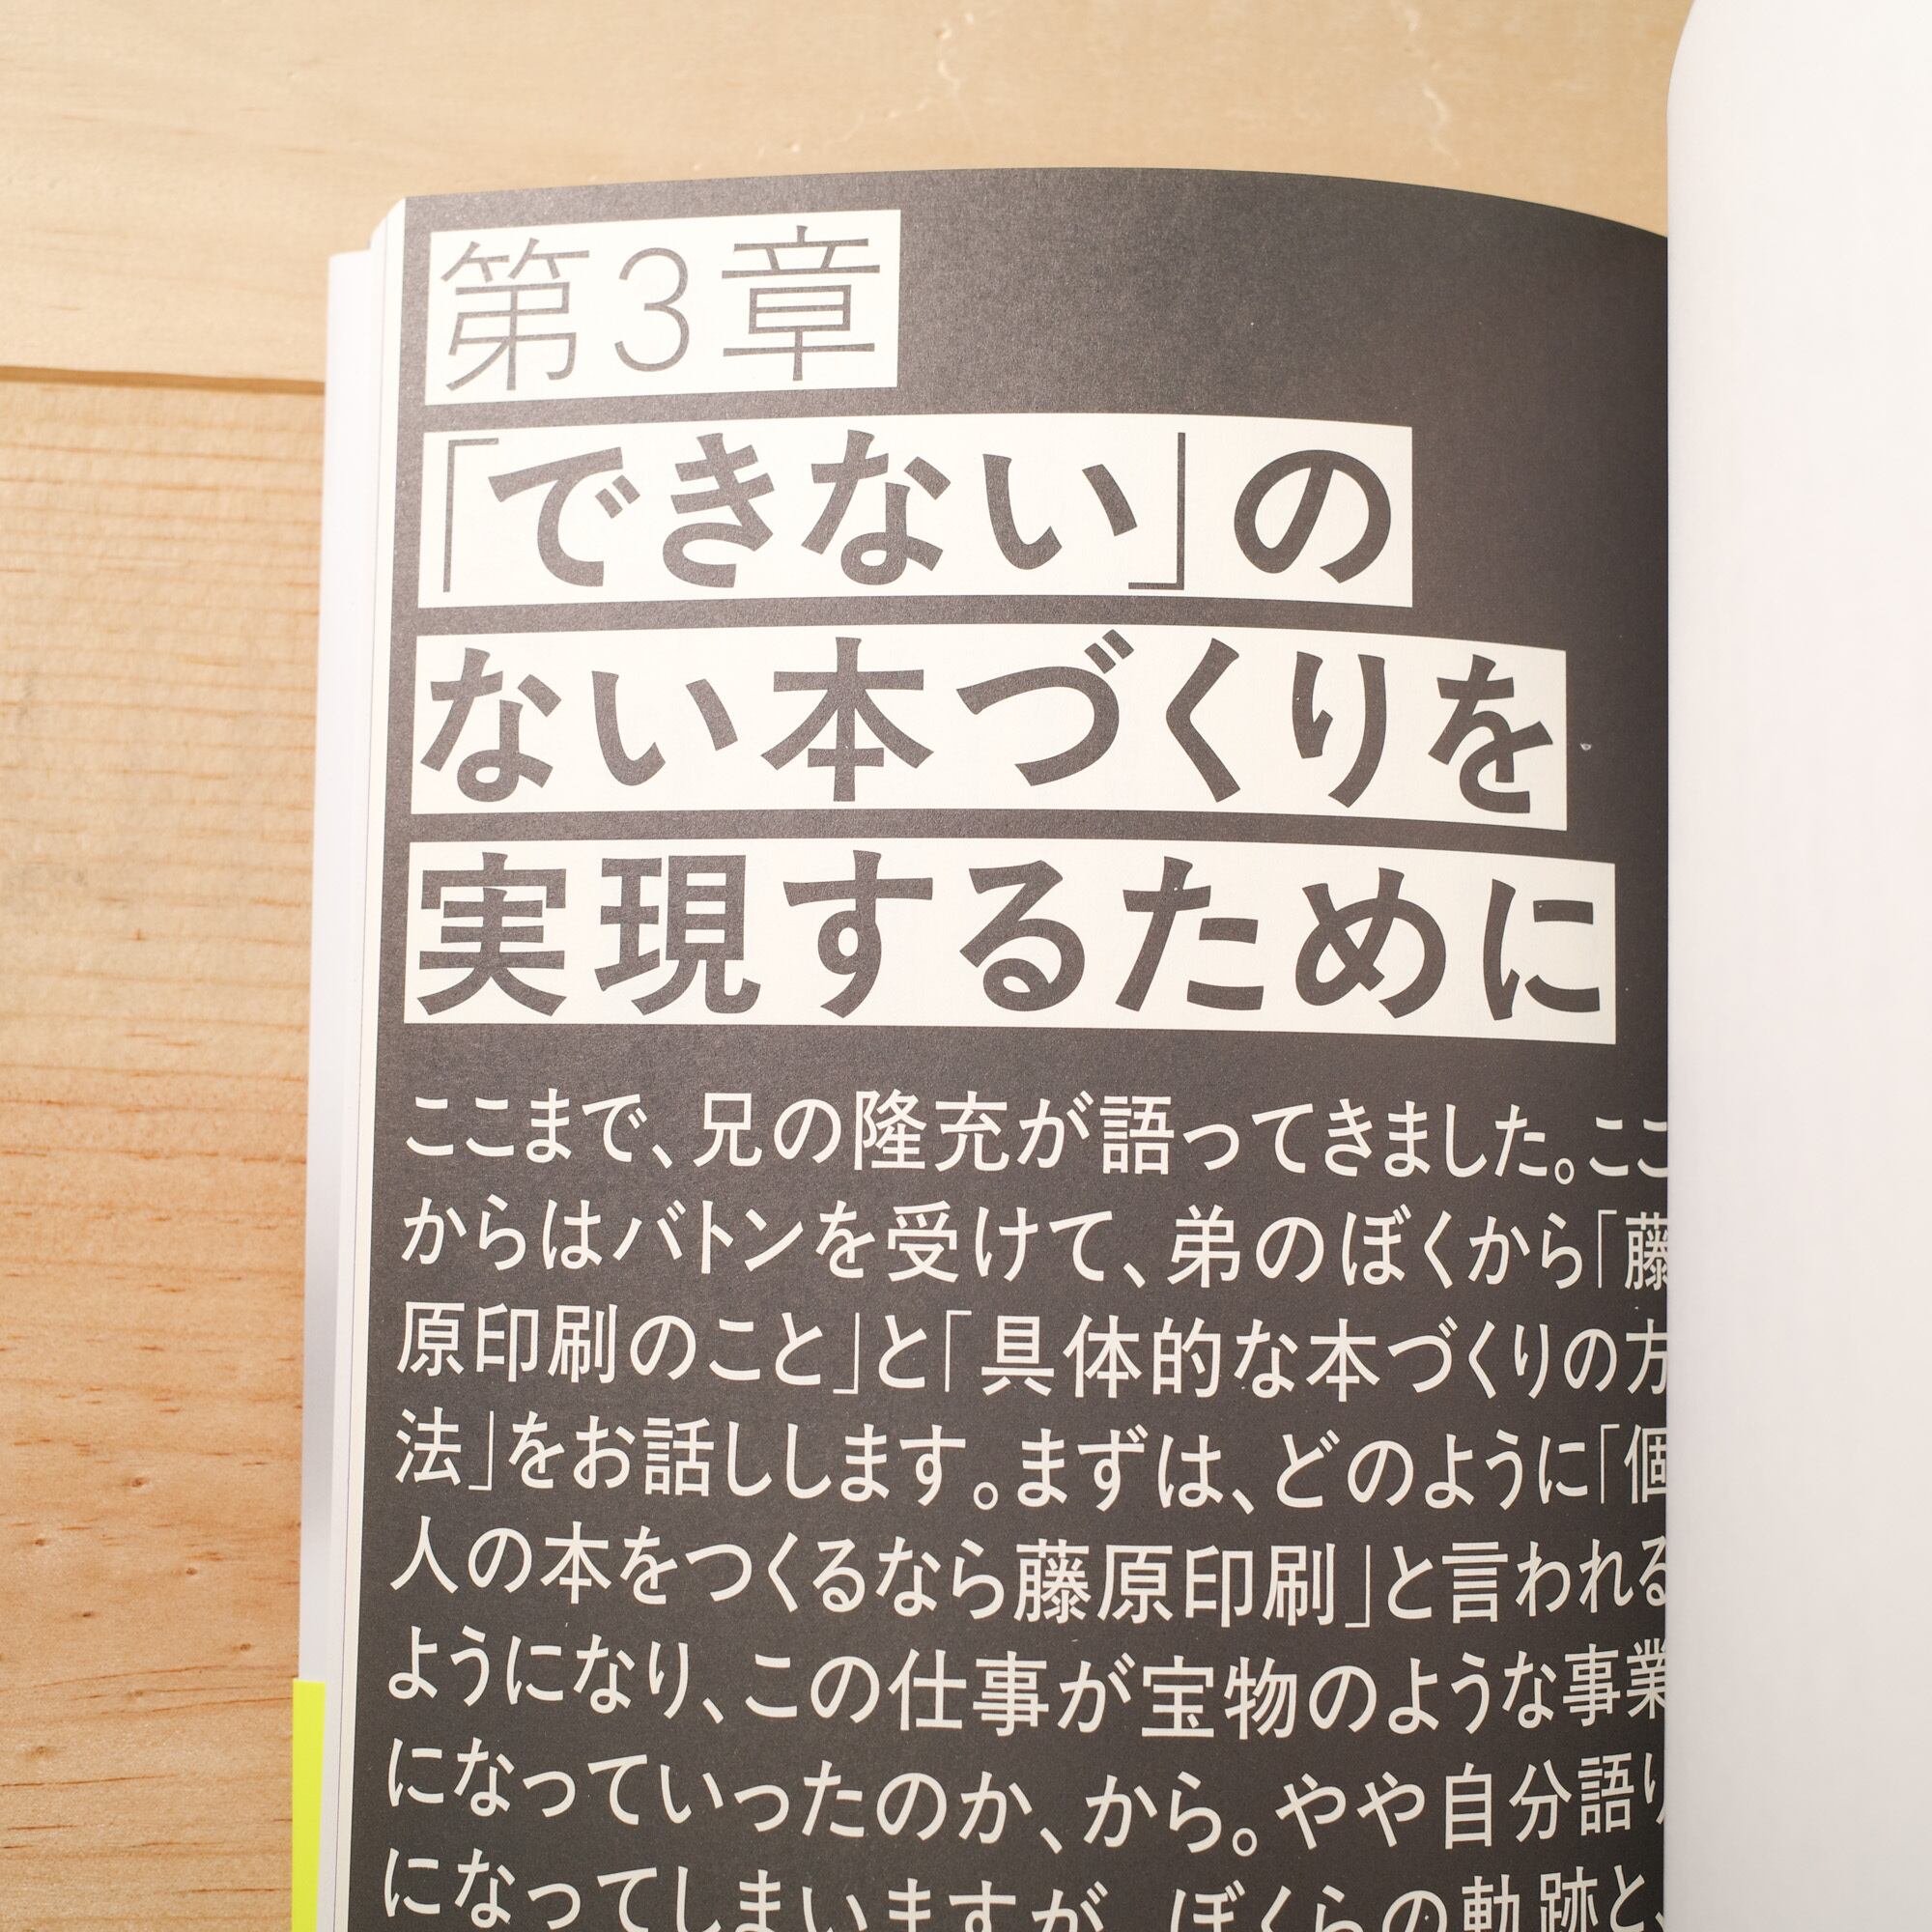 第3章
「できない」の
ない本づくりを
実現するために
ここまで、兄の隆充が語ってきました。ここ
からはバトンを受けて、弟のぼくから「藤
原印刷のこと」と「具体的な本づくりの方
法」をお話しします。まずは、どのように「個
人の本をつくるなら藤原印刷」と言われる
ようになり、この仕事が宝物のような事業
になっていったのか、から。やや自分語り
になってしまいますが、ぼくらの軌跡と、